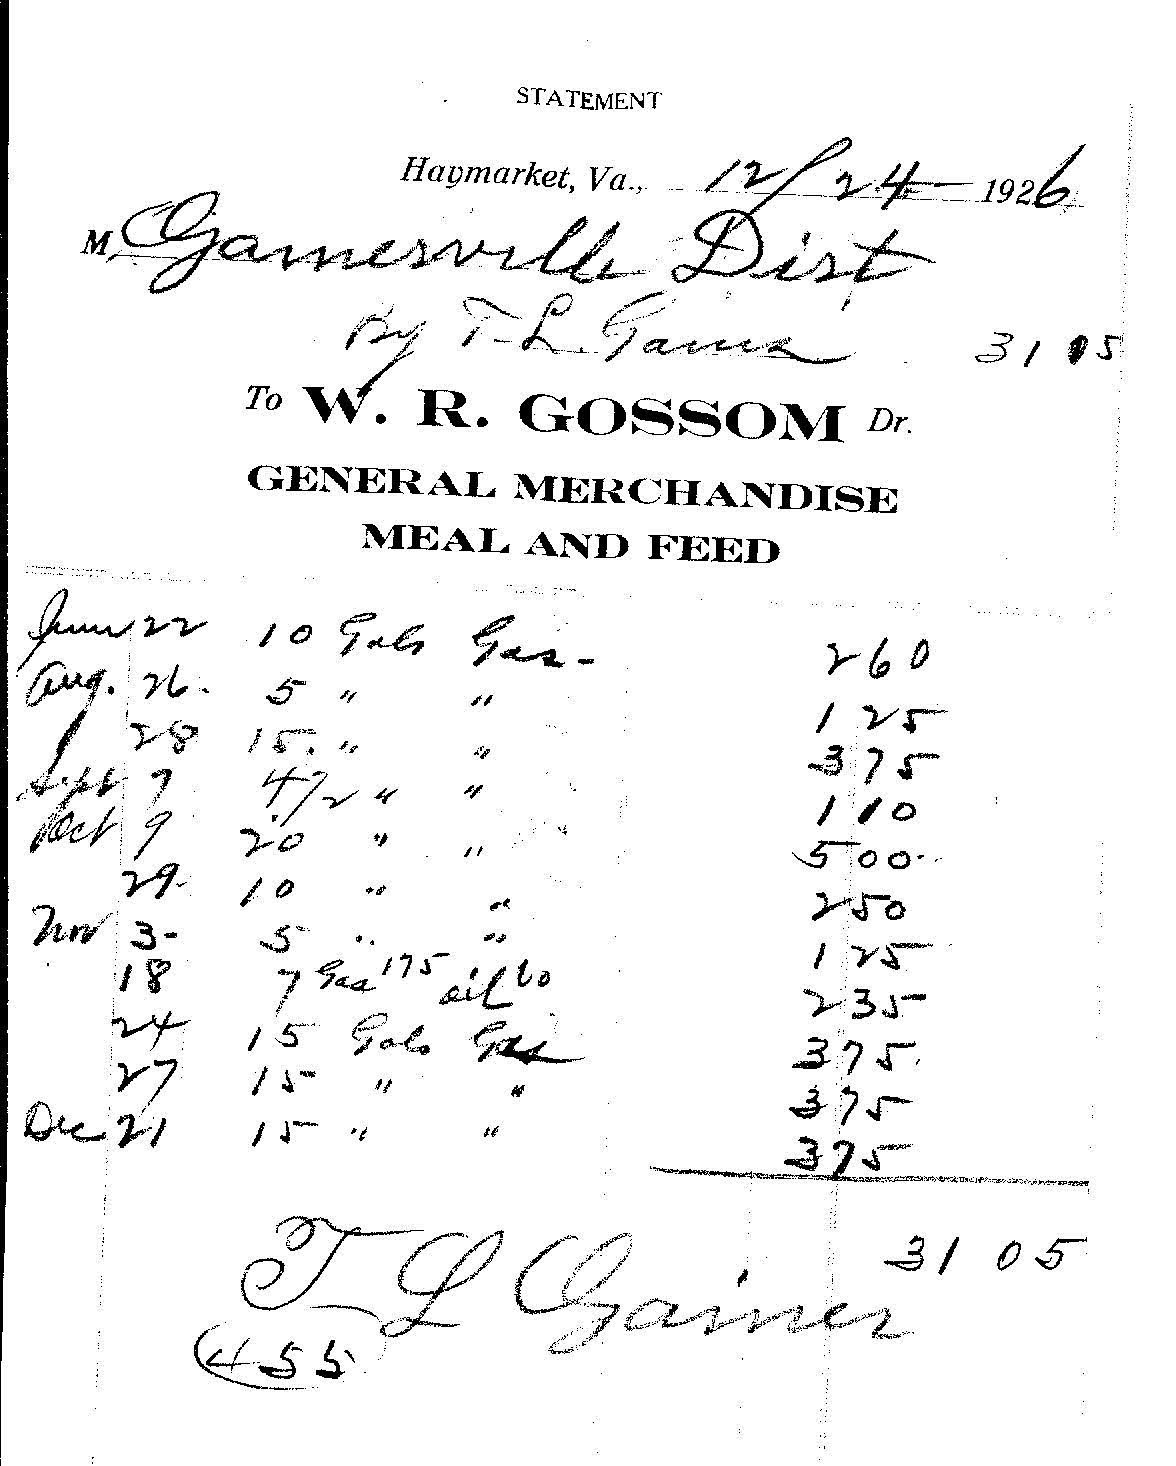 STATEMENT
Haymarket, Va., 12/24 1926
M Gainesville Dist
By T. L. Gaines 31 05
To W. R. GOSSOM Dr.
GENERAL MERCHANDISE
MEAL AND FEED
June 22 10 Gals Gas - 2 60
Aug. 26. 5 " " 1 25
28 15. " " 3 75
Sept 7 4 1/2 " " 1 10
Oct 9 20 " " 5 00
29 10 " " 2 50
Nov 3 - 5 " " 1 25
18 7 Gas 175 oil 60 2 35
24 15 Gals Gas 3 75
27 15 " " 3 75
Dec 21 15 " " 3 75
31 05
T L Gaines
455